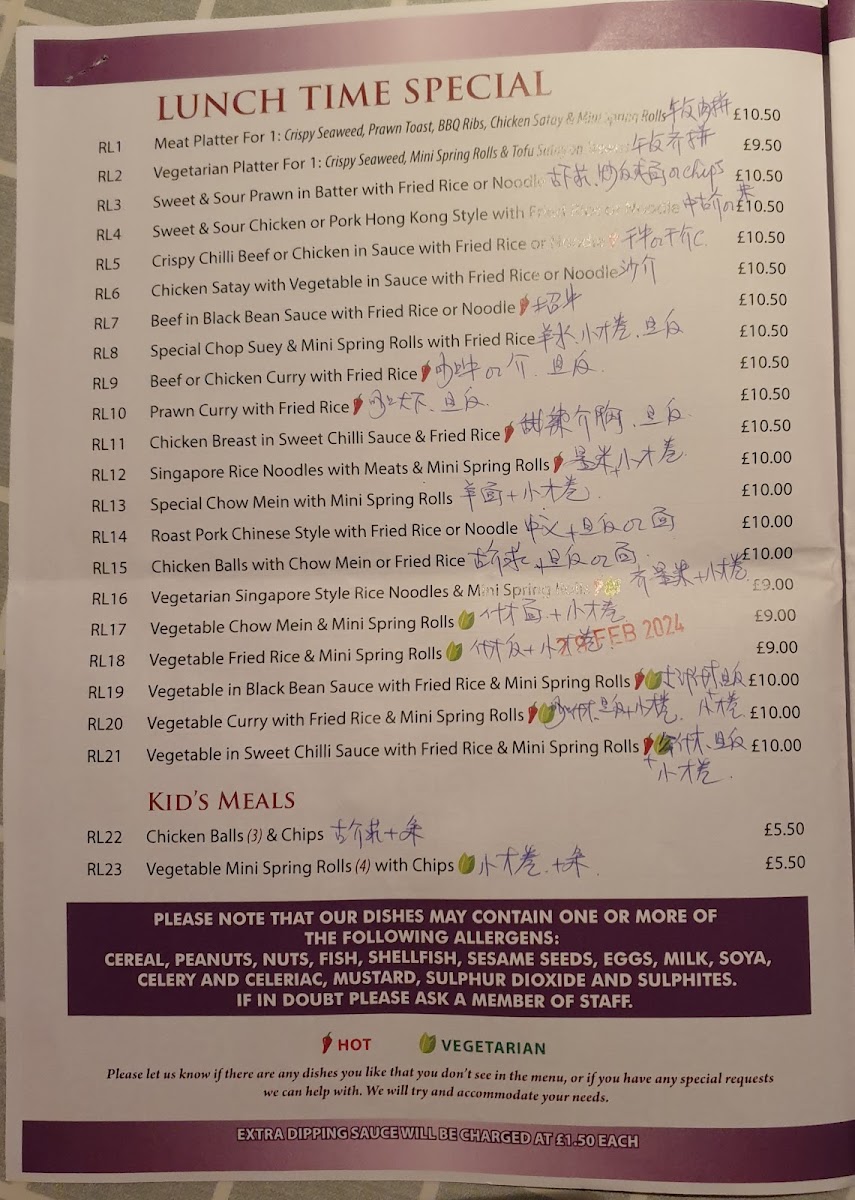 LUNCH TIME SPECIAL
RL1 Meat Platter For 1: Crispy Seaweed, Prawn Toast, BBQ Ribs, Chicken Satay & Mini Spring Rolls 午反肉拼 £10.50
RL2 Vegetarian Platter For 1: Crispy Seaweed, Mini Spring Rolls & Tofu 午反齐拼 £9.50
RL3 Sweet & Sour Prawn in Batter with Fried Rice or Noodle or chips £10.50
RL4 Sweet & Sour Chicken or Pork Hong Kong Style with Fried Rice or Noodle £10.50
RL5 Crispy Chilli Beef or Chicken in Sauce with Fried Rice or Noodle 干牛or干介 £10.50
RL6 Chicken Satay with Vegetable in Sauce with Fried Rice or Noodle 沙介 £10.50
RL7 Beef in Black Bean Sauce with Fried Rice or Noodle £10.50
RL8 Special Chop Suey & Mini Spring Rolls with Fried Rice 小才卷、旦反 £10.50
RL9 Beef or Chicken Curry with Fried Rice 牛or介、旦反 £10.50
RL10 Prawn Curry with Fried Rice 大下、旦反 £10.50
RL11 Chicken Breast in Sweet Chilli Sauce & Fried Rice 甜辣介胸、旦反 £10.50
RL12 Singapore Rice Noodles with Meats & Mini Spring Rolls 星米+小才卷 £10.00
RL13 Special Chow Mein with Mini Spring Rolls 羊面+小才卷 £10.00
RL14 Roast Pork Chinese Style with Fried Rice or Noodle 中义+旦反or面 £10.00
RL15 Chicken Balls with Chow Mein or Fried Rice 古介求+旦反or面 £10.00
RL16 Vegetarian Singapore Style Rice Noodles & Mini Spring Rolls 齐星米+小才卷 £9.00
RL17 Vegetable Chow Mein & Mini Spring Rolls 什才面+小才卷 £9.00
RL18 Vegetable Fried Rice & Mini Spring Rolls 什才反+小才卷 FEB 2024 £9.00
RL19 Vegetable in Black Bean Sauce with Fried Rice & Mini Spring Rolls £10.00
RL20 Vegetable Curry with Fried Rice & Mini Spring Rolls 旦反+小才卷 小才卷 £10.00
RL21 Vegetable in Sweet Chilli Sauce with Fried Rice & Mini Spring Rolls 什才、旦反 £10.00
+小才卷
KID'S MEALS
RL22 Chicken Balls (3) & Chips 古介求+条 £5.50
RL23 Vegetable Mini Spring Rolls (4) with Chips 小才卷+条 £5.50
PLEASE NOTE THAT OUR DISHES MAY CONTAIN ONE OR MORE OF
THE FOLLOWING ALLERGENS:
CEREAL, PEANUTS, NUTS, FISH, SHELLFISH, SESAME SEEDS, EGGS, MILK, SOYA,
CELERY AND CELERIAC, MUSTARD, SULPHUR DIOXIDE AND SULPHITES.
IF IN DOUBT PLEASE ASK A MEMBER OF STAFF.
HOT VEGETARIAN
Please let us know if there are any dishes you like that you don't see in the menu, or if you have any special requests
we can help with. We will try and accommodate your needs.
EXTRA DIPPING SAUCE WILL BE CHARGED AT £1.50 EACH